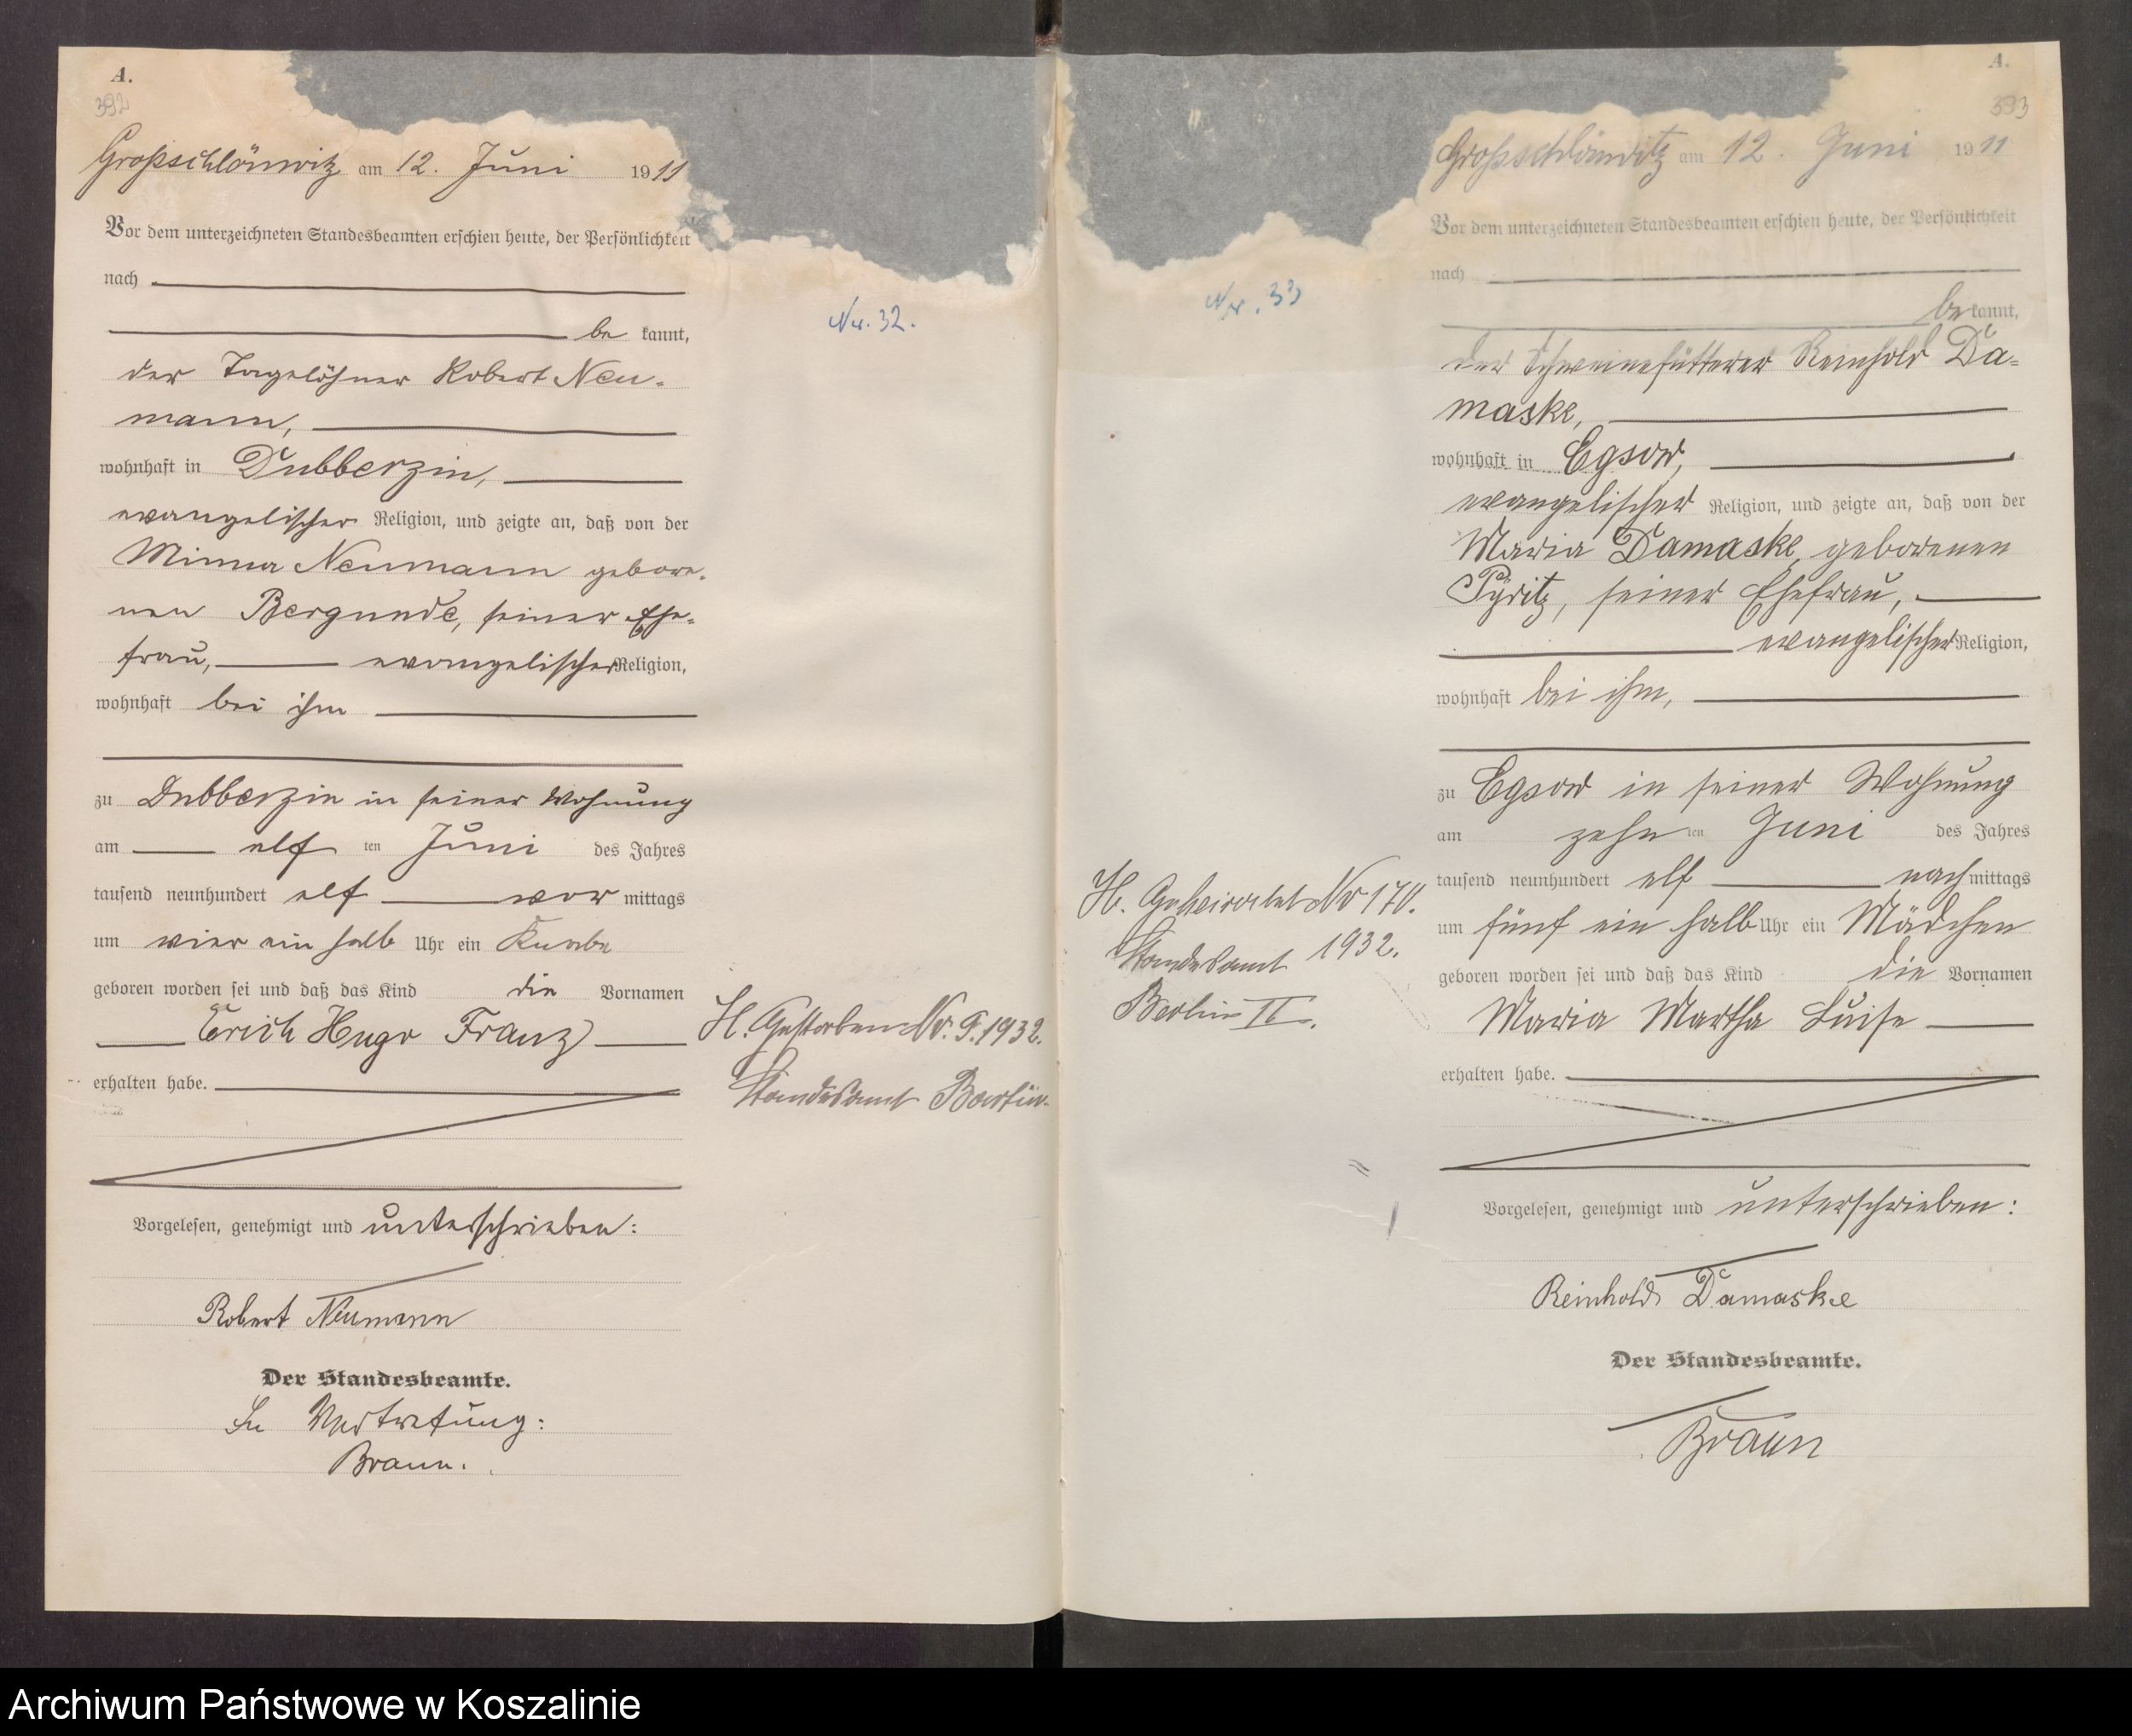 A.
392
Großschlönwitz am 12. Juni 1911
Vor dem unterzeichneten Standesbeamten erschien heute, der Persönlichkeit
nach
be kannt,
der Tagelöhner Robert Neu-
mann,
wohnhaft in Dubberzin,
evangelischer Religion, und zeigte an, daß von der
Minna Neumann gebore-
nen Bergunde, seiner Ehe-
frau, evangelischer Religion,
wohnhaft bei ihm
zu Dubberzin in seiner Wohnung
am elf ten Juni des Jahres
tausend neunhundert elf vor mittags
um vier ein halb Uhr ein Knabe
geboren worden sei und daß das Kind die Vornamen
Erich Hugo Franz
erhalten habe.
Vorgelesen, genehmigt und unterschrieben:
Robert Neumann
Der Standesbeamte.
In Vertretung:
Braun.
Nr. 32.
H. Gestorben Nr. 1932.
Standesamt
Nr. 33
H. Geheiratet Nr
Standesamt 1932.
Berlin II.
A.
393
Großschlönwitz am 12. Juni 1911
Vor dem unterzeichneten Standesbeamten erschien heute, der Persönlichkeit
nach
be kannt,
der Schweinefütterer Reinhold Da-
maske,
wohnhaft in Egsow,
evangelischer Religion, und zeigte an, daß von der
Maria Damaske, geborenen
Pyritz, seiner Ehefrau,
evangelischer Religion,
wohnhaft bei ihm,
zu Egsow in seiner Wohnung
am zehn ten Juni des Jahres
tausend neunhundert elf nach mittags
um fünf ein halb Uhr ein Mädchen
geboren worden sei und daß das Kind die Vornamen
Maria Martha Luise
erhalten habe.
Vorgelesen, genehmigt und unterschrieben:
Reinhold Damaske
Der Standesbeamte.
Braun
Archiwum Państwowe w Koszalinie